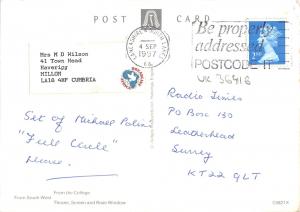 POST CARD
LANCASHIRE & SOUTH LAKES
4 SEP
1997
Be properly
addressed
POSTCODE IT
UK 36916
2ND
Mrs M D Wilson
41 Town Head
Haverigg
MILLOM
LA18 4HF CUMBRIA
Set of Michael Palin
"Full Circle"
please.
Radio Times
PO Box 130
Leatherhead
Surrey
KT22 9LT
From the College
From South West
Flowers, Screen and Rose Window